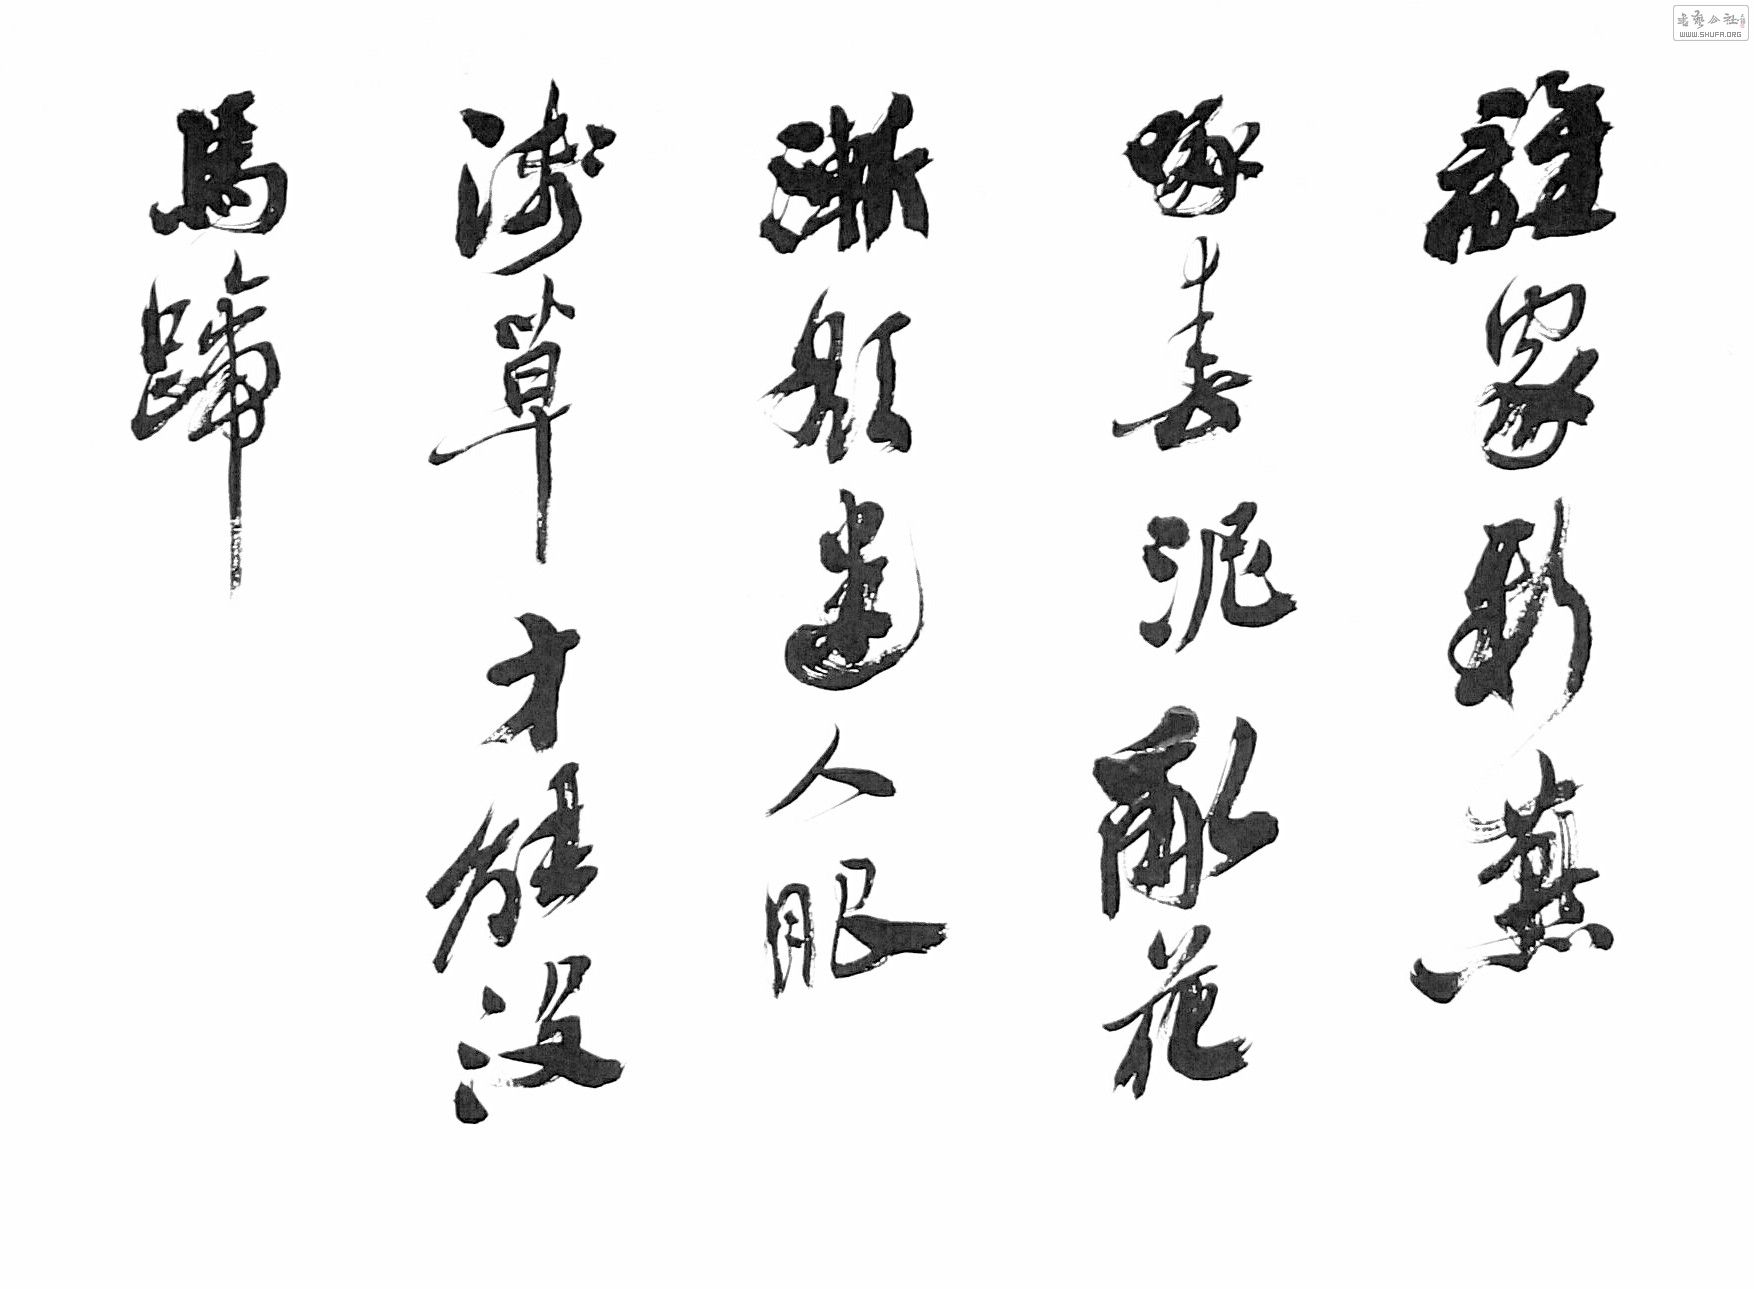 誰家新燕
啄春泥亂花
漸欲迷人眼
淺草才能没
馬蹄
书艺公社
WWW.SHUFA.ORG